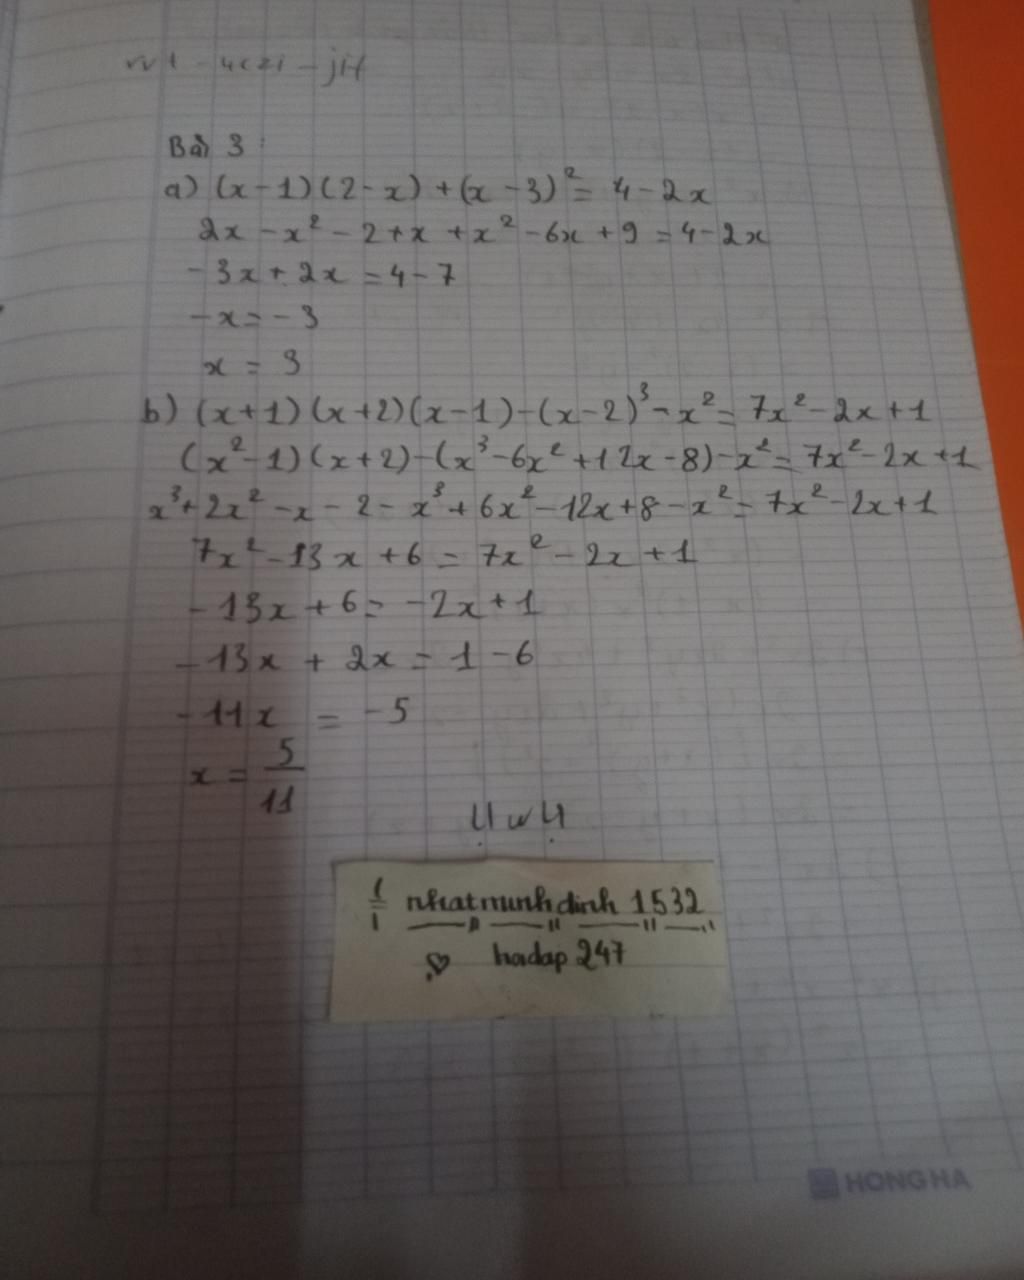 Bài 3:
a) (x-1)(2-x)+(x-3)²= 4-2x
2x-x²-2+x+x²-6x+9=4-2x
-3x+2x=4-7
-x=-3
x=3
b) (x+1)(x+2)(x-1)-(x-2)³-x²=7x²-2x+1
(x²-1)(x+2)-(x³-6x²+12x-8)-x²=7x²-2x+1
x³+2x²-x-2-x³+6x²-12x+8-x²=7x²-2x+1
7x²-13x+6=7x²-2x+1
-13x+6=-2x+1
-13x+2x=1-6
-11x=-5
x=5/11
UwU
nhatminhdinh1532
hadap247
HONG HA